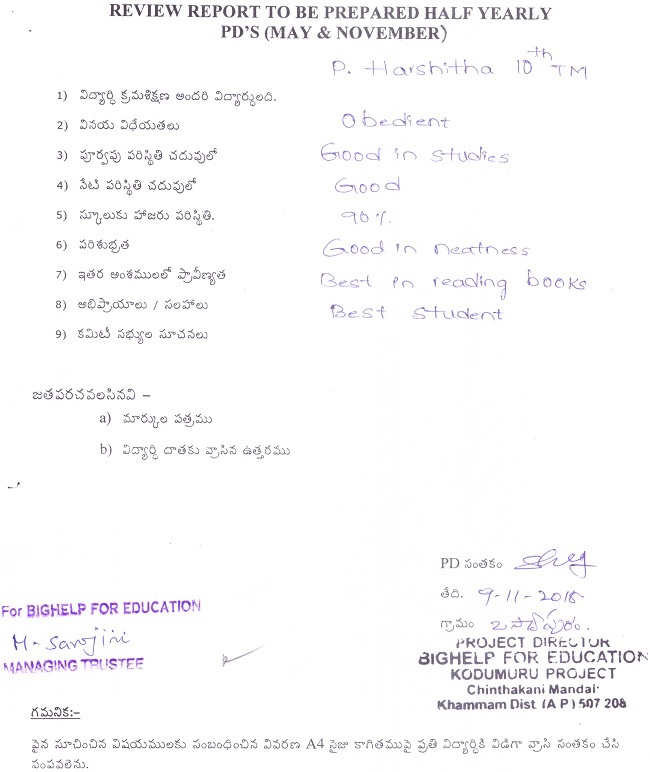 REVIEW REPORT TO BE PREPARED HALF YEARLY
PD'S (MAY & NOVEMBER)
P. Harshitha 10th TM
1) విద్యార్థి క్రమశిక్షణ అందరి విద్యార్థులది.
2) వినయ విధేయతలు Obedient
3) పూర్వపు పరిస్థితి చదువులో Good in studies
4) నేటి పరిస్థితి చదువులో Good
5) స్కూలుకు హాజరు పరిస్థితి. 90%.
6) పరిశుభ్రత Good in neatness
7) ఇతర అంశములలో ప్రావీణ్యత Best in reading books
8) అభిప్రాయాలు / సలహాలు Best student
9) కమిటీ సభ్యుల సూచనలు
జతపరచవలసినవి –
a) మార్కుల పత్రము
b) విద్యార్థి దాతకు వ్రాసిన ఉత్తరము
PD సంతకం
తేది. 9-11-2015
గ్రామం
For BIGHELP FOR EDUCATION
M. Sarojini
MANAGING TRUSTEE
PROJECT DIRECTOR
BIGHELP FOR EDUCATION
KODUMURU PROJECT
Chinthakani Mandal
Khammam Dist (A P) 507 208
గమనిక:–
పైన సూచించిన విషయములకు సంబంధించిన వివరణ A4 సైజు కాగితముపై ప్రతి విద్యార్థికి విడిగా వ్రాసి సంతకం చేసి
పంపవలెను.